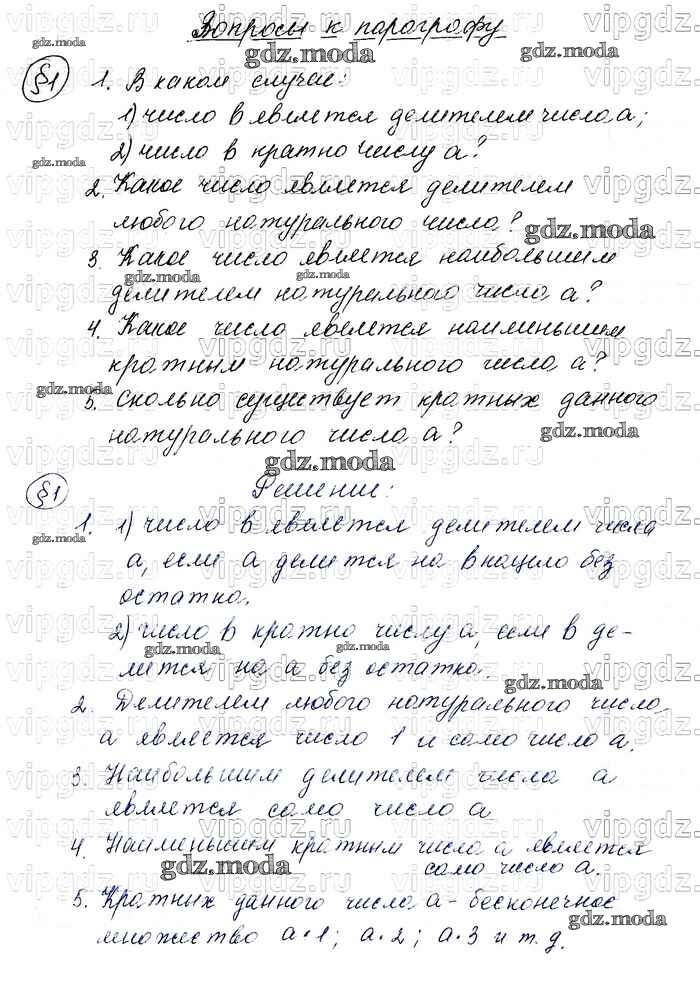 Вопросы к параграфу
§1 1. В каком случае:
1) число в является делителем числа а;
2) число в кратно числу а?
2. Какое число является делителем
любого натурального числа?
3. Какое число является наибольшим
делителем натурального числа а?
4. Какое число является наименьшим
кратным натурального числа а?
5. Сколько существует кратных данного
натурального числа а?
§1 Решение:
1. 1) число в является делителем числа
а, если а делится на в нацело без
остатка.
2) число в кратно числу а, если в де-
лится на а без остатка.
2. Делителем любого натурального числа
а является число 1 и само число а.
3. Наибольшим делителем числа а
является само число а
4. Наименьшим кратным числа а является
само число а.
5. Кратных данного числа а - бесконечное
множество а·1; а·2; а·3 и т.д.
gdz.moda
vipgdz.ru